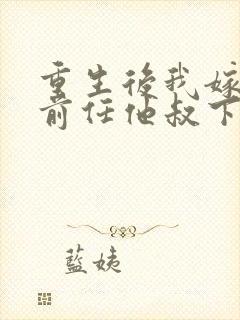 重生後我嫁
前任他叔下
藍姨